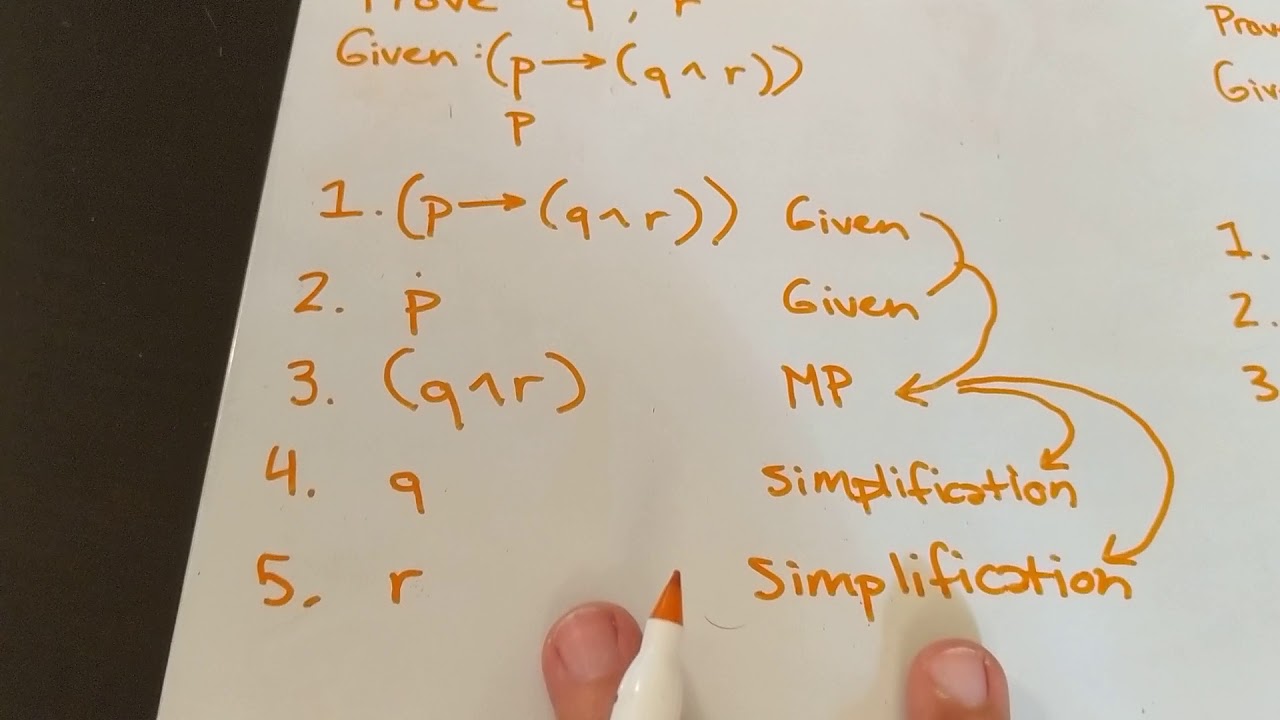 Prove q, r
Given: (p → (q ∧ r))
p
1. (p → (q ∧ r)) Given
2. p Given
3. (q ∧ r) MP
4. q Simplification
5. r Simplification
1.
2.
3